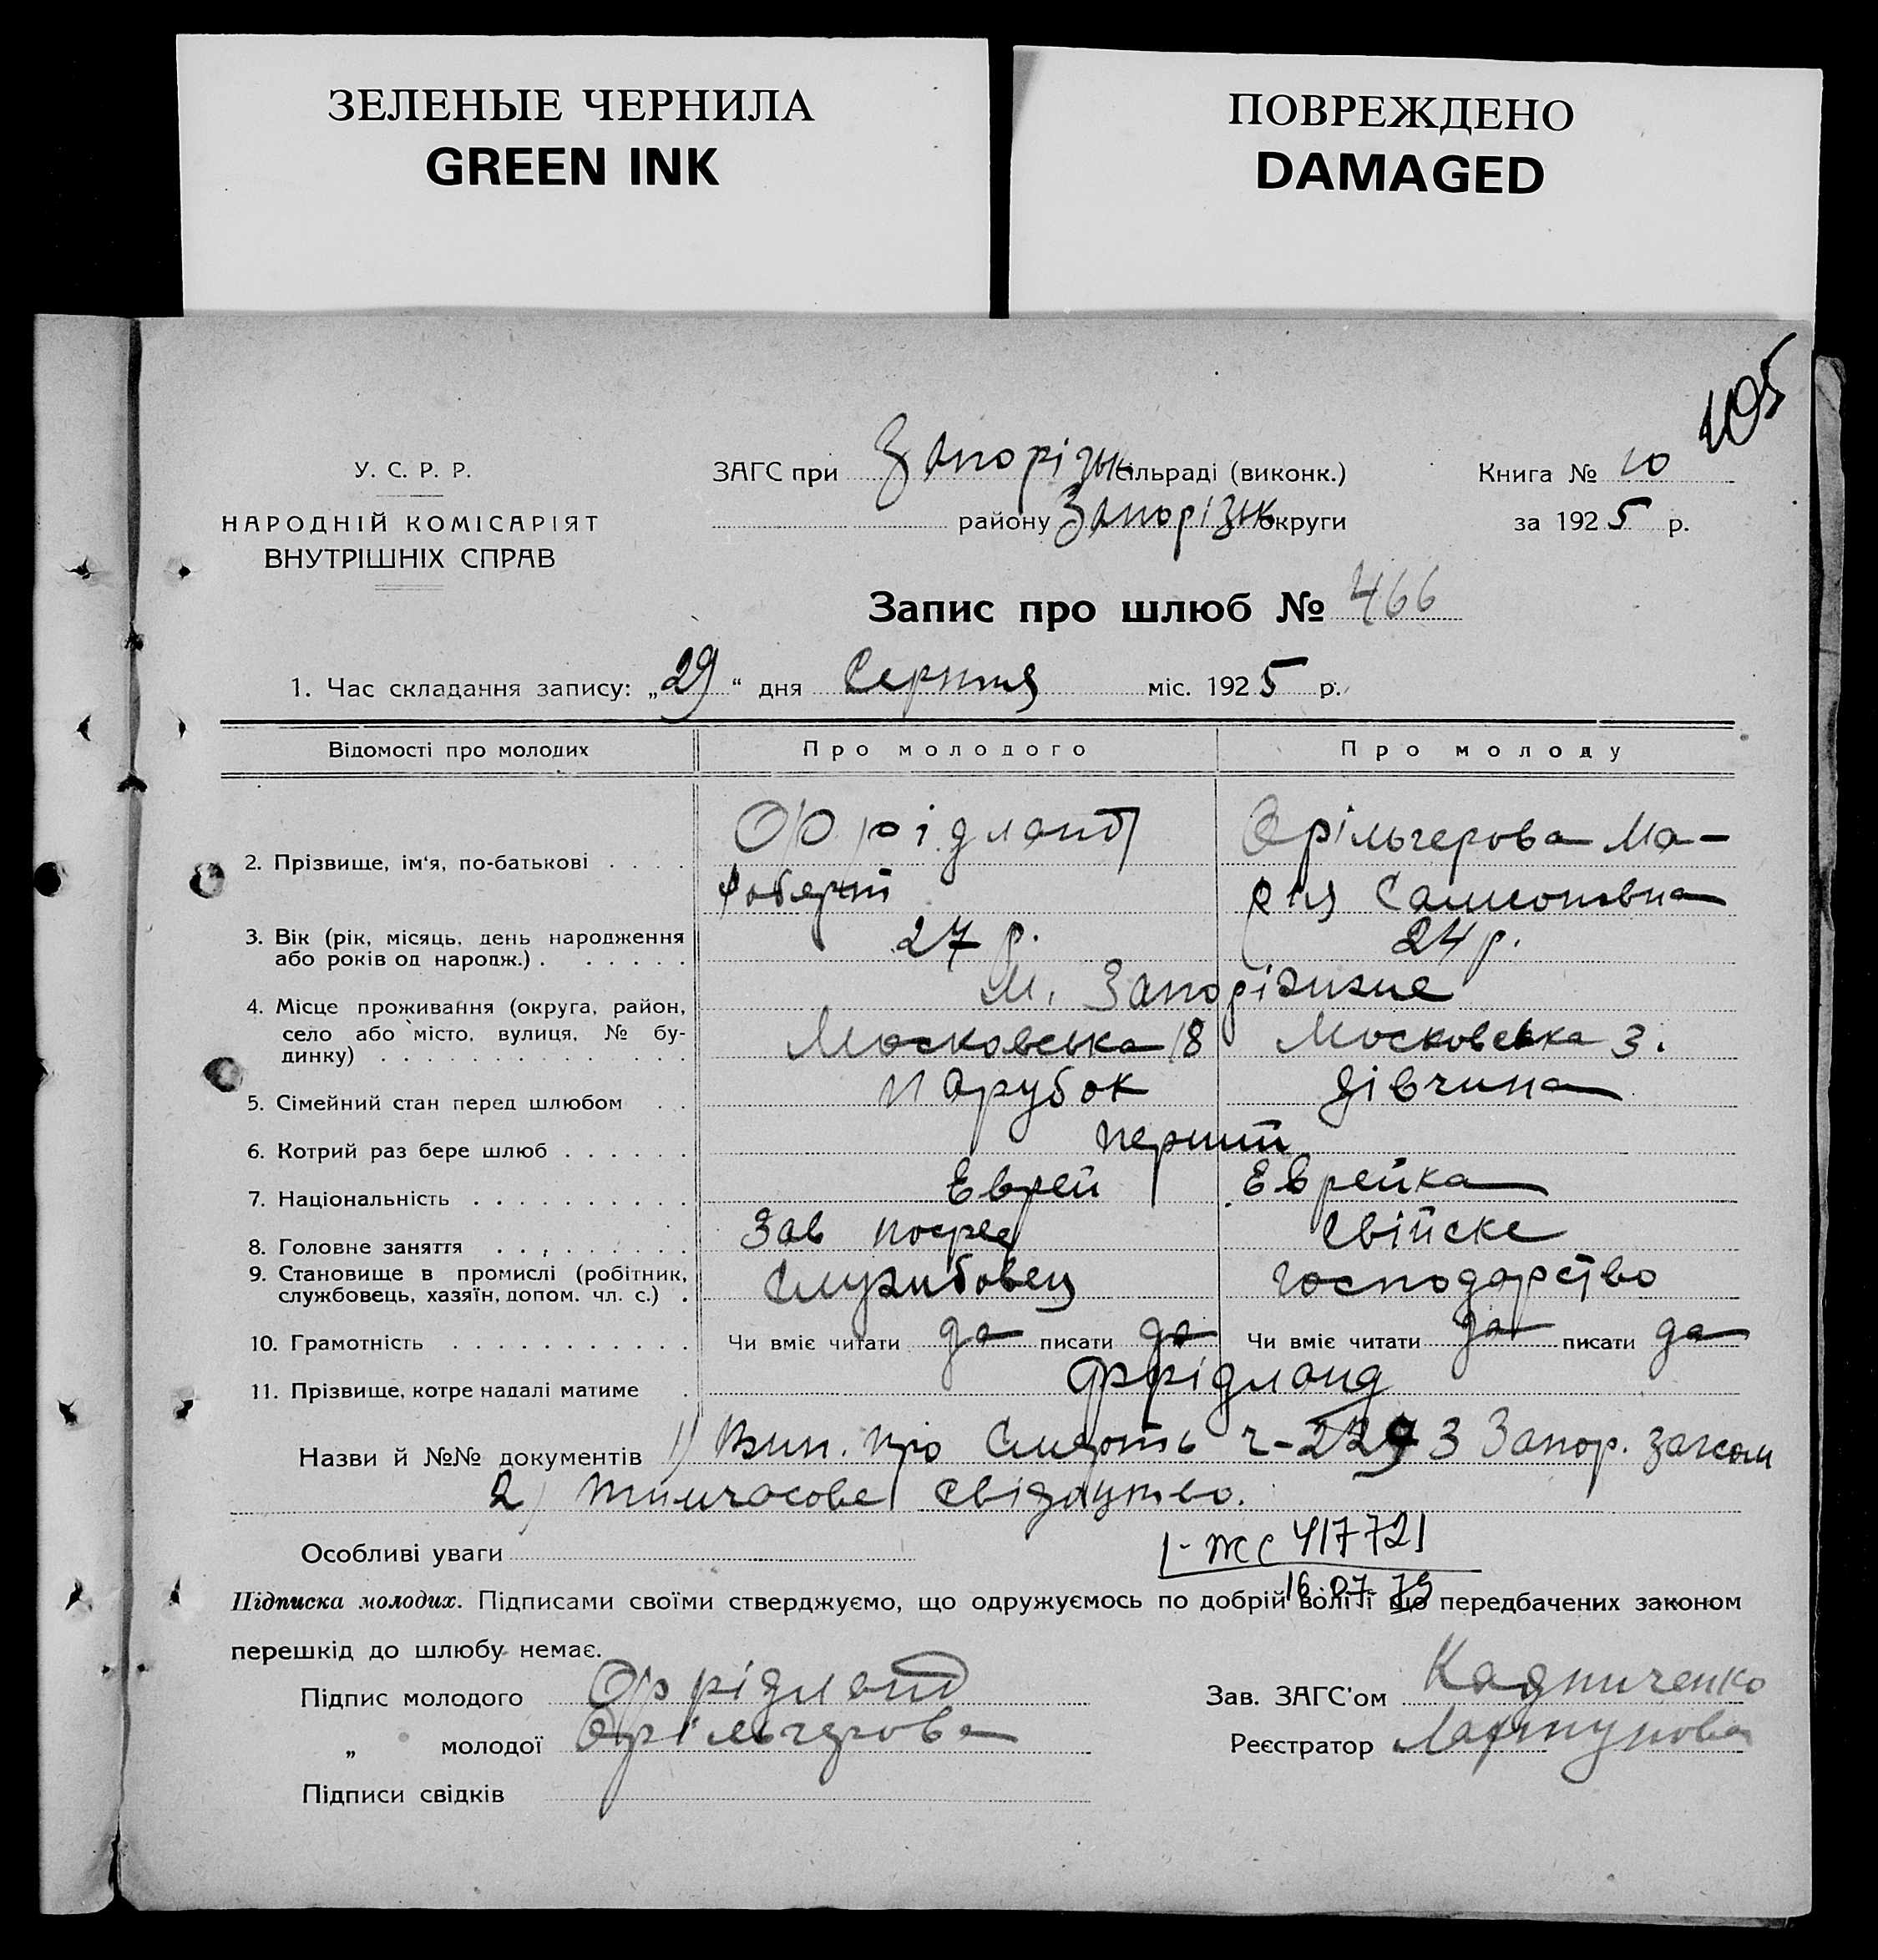 ЗЕЛЕНЫЕ ЧЕРНИЛА
GREEN INK
ПОВРЕЖДЕНО
DAMAGED
105
У. С. Р. Р.
НАРОДНІЙ КОМІСАРІЯТ
ВНУТРІШНІХ СПРАВ
ЗАГС при Запорізьк сільраді (виконк.)
району Запорізьк округи
Книга № 10
за 1925 р.
Запис про шлюб № 466
1. Час складання запису: „29“ дня Серпня міс. 1925 р.
Відомості про молодих Про молодого Про молоду
2. Прізвище, ім'я, по-батькові . . . . Фрідланд Фрільчерова Ма-
Роберт рія Самсоновна
3. Вік (рік, місяць, день народження 27 р. 24 р.
або років од народж.) . . . . . .
4. Місце проживання (округа, район, м. Запоріжжє
село або місто, вулиця, № бу- Московська 18 Московська 3.
динку) . . . . . . . . . . . . . .
5. Сімейний стан перед шлюбом . . Парубок дівчина
6. Котрий раз бере шлюб . . . . . . перший
7. Національність . . . . . . . . . . Еврей Еврейка
8. Головне заняття . . . . . . . . . Зав посред Свійске
9. Становище в промислі (робітник, Службовец господарство
службовець, хазяїн, допом. чл. с.) .
10. Грамотність . . . . . . . . . . . Чи вміє читати да писати да Чи вміє читати да писати да
11. Прізвище, котре надалі матиме . Фрідланд
Назви й №№ документів 1) Вип. про Смерть ч-2293 Запор. загсом
2) тимчасове свідоцтво.
Особливі уваги
І-ЖС 417721
16.07.79
Підписка молодих. Підписами своїми стверджуємо, що одружуємось по добрій волі і що передбачених законом
перешкід до шлюбу немає.
Підпис молодого Фрідланд
Зав. ЗАГС'ом
„ молодої Фрільчерова
Реєстратор
Підписи свідків